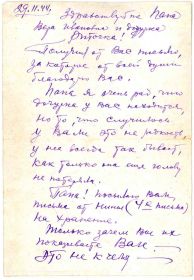 29.11.44.
Здравствуйте Папа
Вера Ивановна и дочурка
Риточка!
Получил от Вас письмо,
за которое от всей души
благодарю Вас.
Папа я очень рад, что
дочурка у Вас находится
но то что случилось
у Вали это не редкость
у нее всегда так бывает,
как только она еще голову
не потеряла.
Папа! посылаю Вам
письма от Нины (4х письма)
на хранение.
Только зачем Вы их
показываете Вали.
Это не к чему